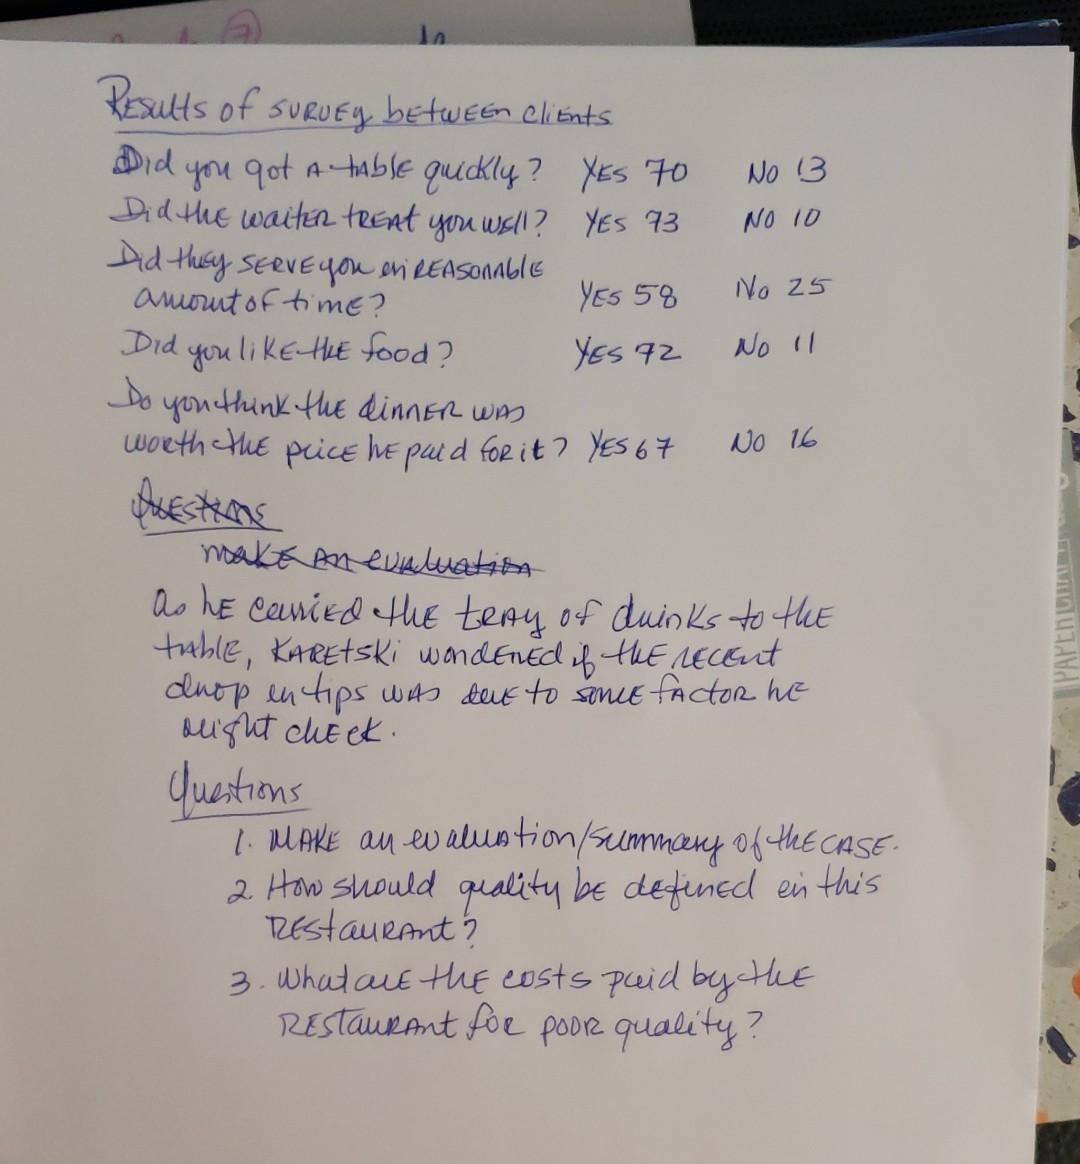 Results of survey between clients
Did you got a table quickly? Yes 70 No 13
Did the waiter treat you well? Yes 73 No 10
Did they serve you in reasonable
amount of time? Yes 58 No 25
Did you like the food? Yes 72 No 11
Do you think the dinner was
worth the price he paid for it? Yes 67 No 16
Questions
make an evaluation
As he carried the tray of drinks to the
table, Karetski wondered if the recent
drop in tips was due to some factor he
might check.
Questions
1. Make an evaluation/summary of the case.
2. How should quality be defined in this
restaurant?
3. What are the costs paid by the
restaurant for poor quality?